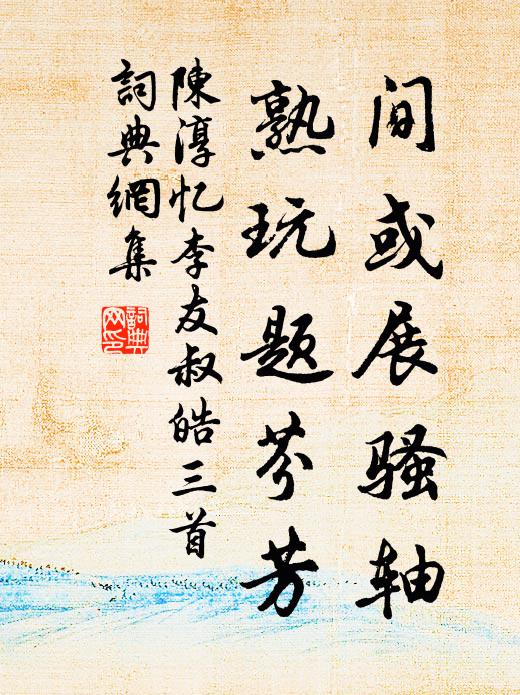 间或展骚轴
熟玩题芬芳
陳淳忆李友叔皓三首
詞典網集
詞典网印